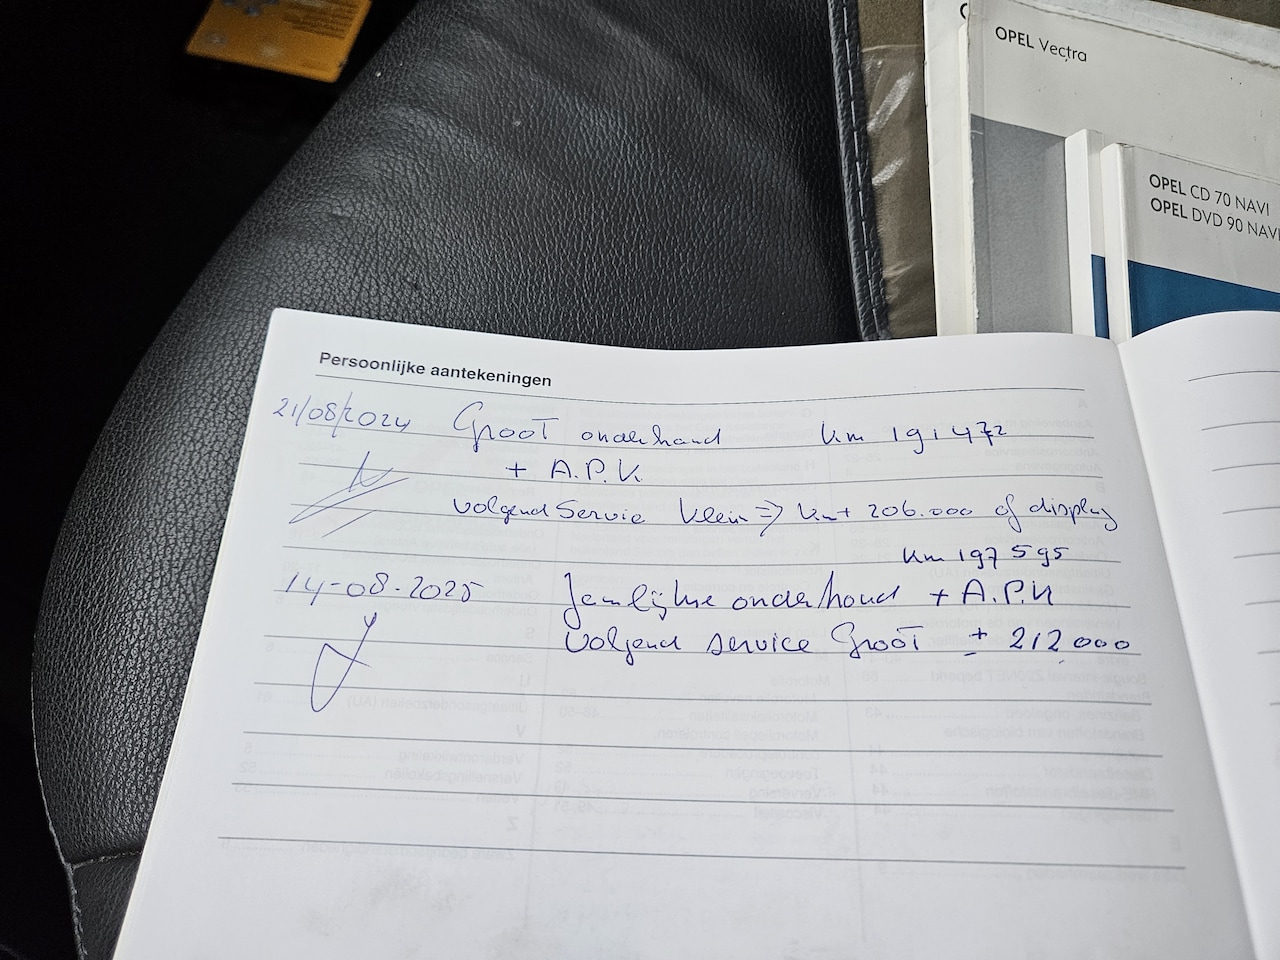 OPEL Vectra
OPEL CD 70 NAVI
OPEL DVD 90 NAVI
Persoonlijke aantekeningen
21/08/2024 Groot onderhoud km 191472
+ A.P.K.
volgend Servie klein => km + 206.000 of display
km 197595
14-08-2025 Jaarlijkse onderhoud + A.P.K
Volgend service Groot ± 212000